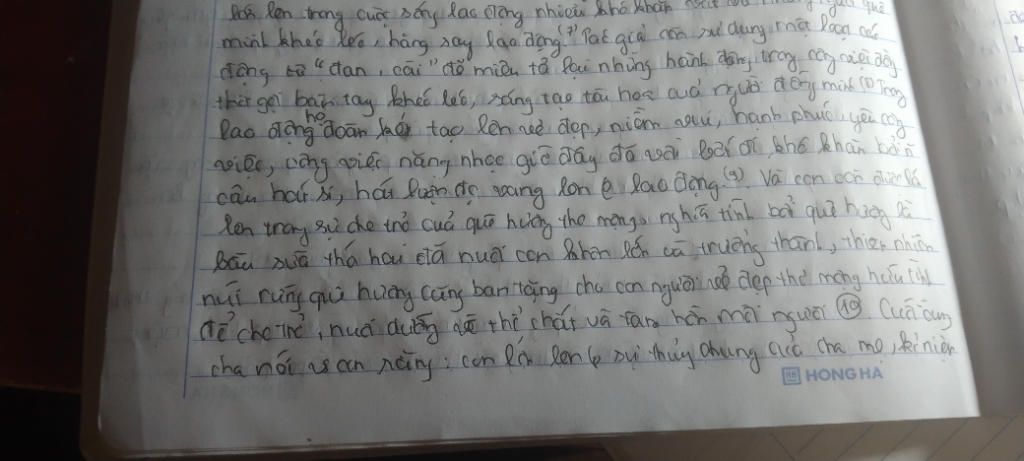 lớn lên trong cuộc sống lao động nhiều khó khăn quê
mình khéo léo, hăng say lao động.(7) Tác giả còn sử dụng một loạt các
động từ "đan, cài" để miêu tả lại những hành động trong công việc đồng
thời gợi bàn tay khéo léo, sáng tạo tài hoa của người đồng mình (8) Trong
lao động họ đoàn kết tạo lên vẻ đẹp, niềm vui, hạnh phúc, yêu công
việc, công việc nặng nhọc giờ đây đã vơi bớt đi khó khăn bởi
câu hát si, hát lượn đc vang lên ở lao động.(9) Và con còn được lớn
lên trong sự che trở cuả quê hương thơ mộng, nghĩa tình bởi quê hương là
bầu sữa thứ hai đã nuôi con khôn lớn và trưởng thành, thiên nhiên
núi rừng quê hương cũng ban tặng cho con người vẻ đẹp thơ mộng hữu tình
để che trở, nuôi dưỡng về thể chất và tâm hồn mỗi người (10) Cuối cùng
cha nói vs con rằng: con lớn lên từ sự thủy chung của cha mẹ, kỉ niệm
HONG HA